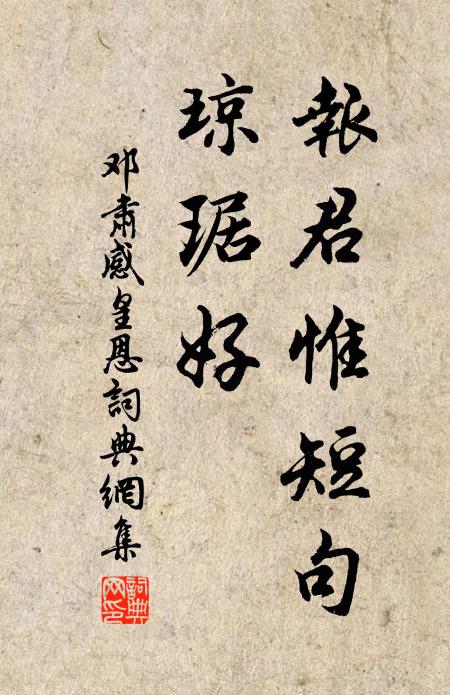 報君惟短句
琼琚好
邓肅感皇恩詞典網集
詞典网印